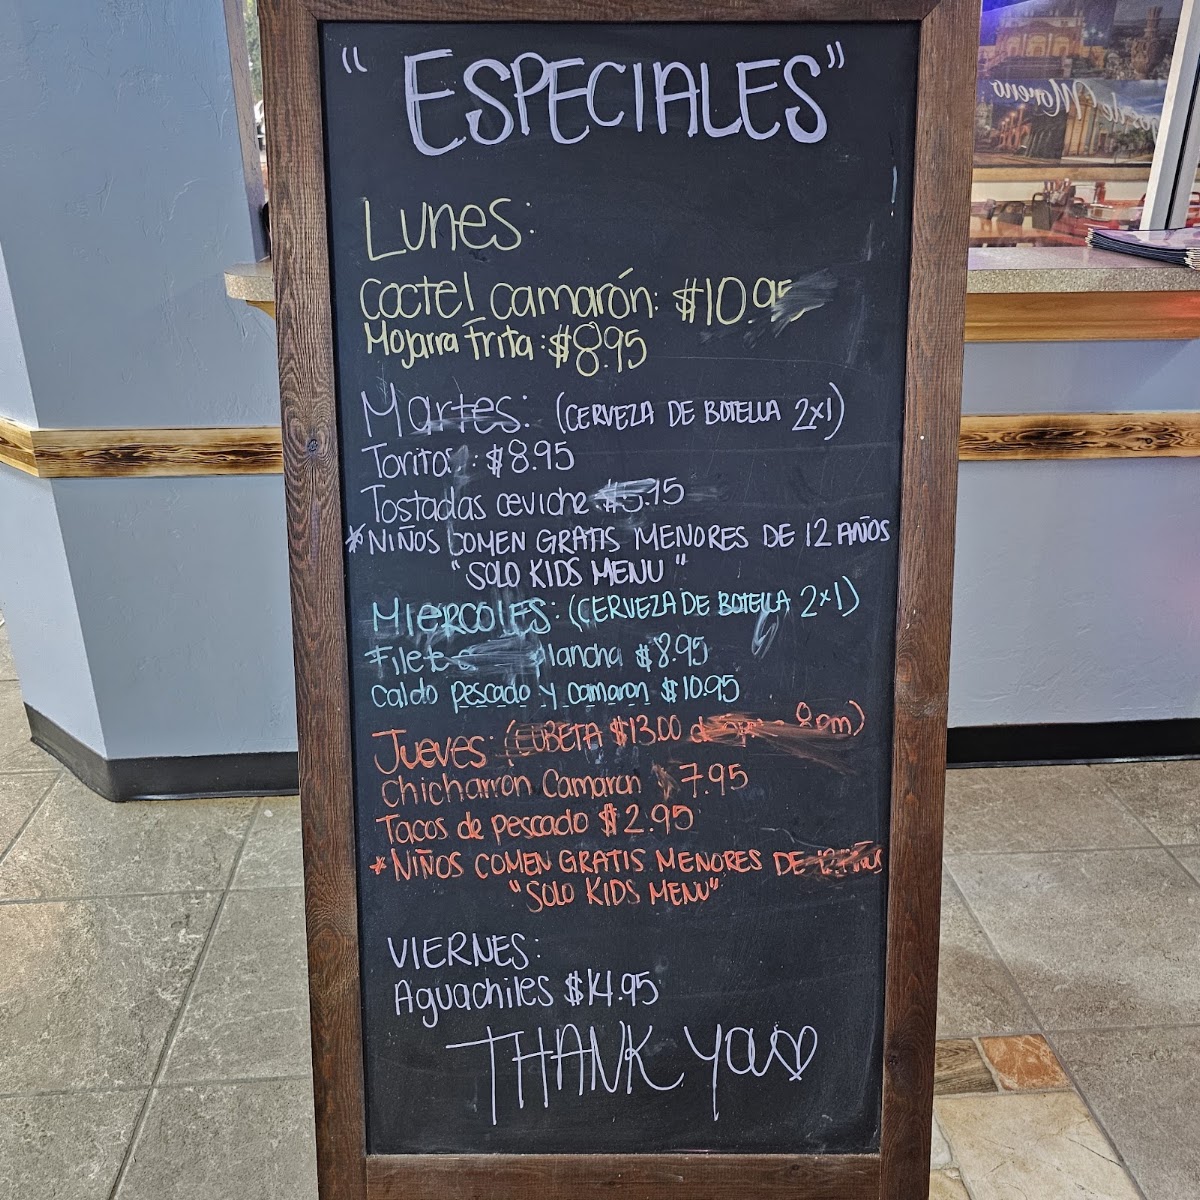 "ESPECIALES"
LUNES:
Coctel camarón: $10.95
Mojarra frita: $8.95
Martes: (CERVEZA DE BOTELLA 2x1)
Toritos: $8.95
Tostadas ceviche $5.15
*NIÑOS COMEN GRATIS MENORES DE 12 AÑOS
"SOLO KIDS MENU"
MIERCOLES: (CERVEZA DE BOTELLA 2x1)
Filete plancha $8.95
Caldo pescado y camaron $10.95
JUEVES: (CUBETA $13.00 8pm)
Chicharrón Camaron 7.95
Tacos de pescado $2.95
*NIÑOS COMEN GRATIS MENORES DE
"SOLO KIDS MENU"
VIERNES:
Aguachiles $14.95
THANK YOU
de Moreno